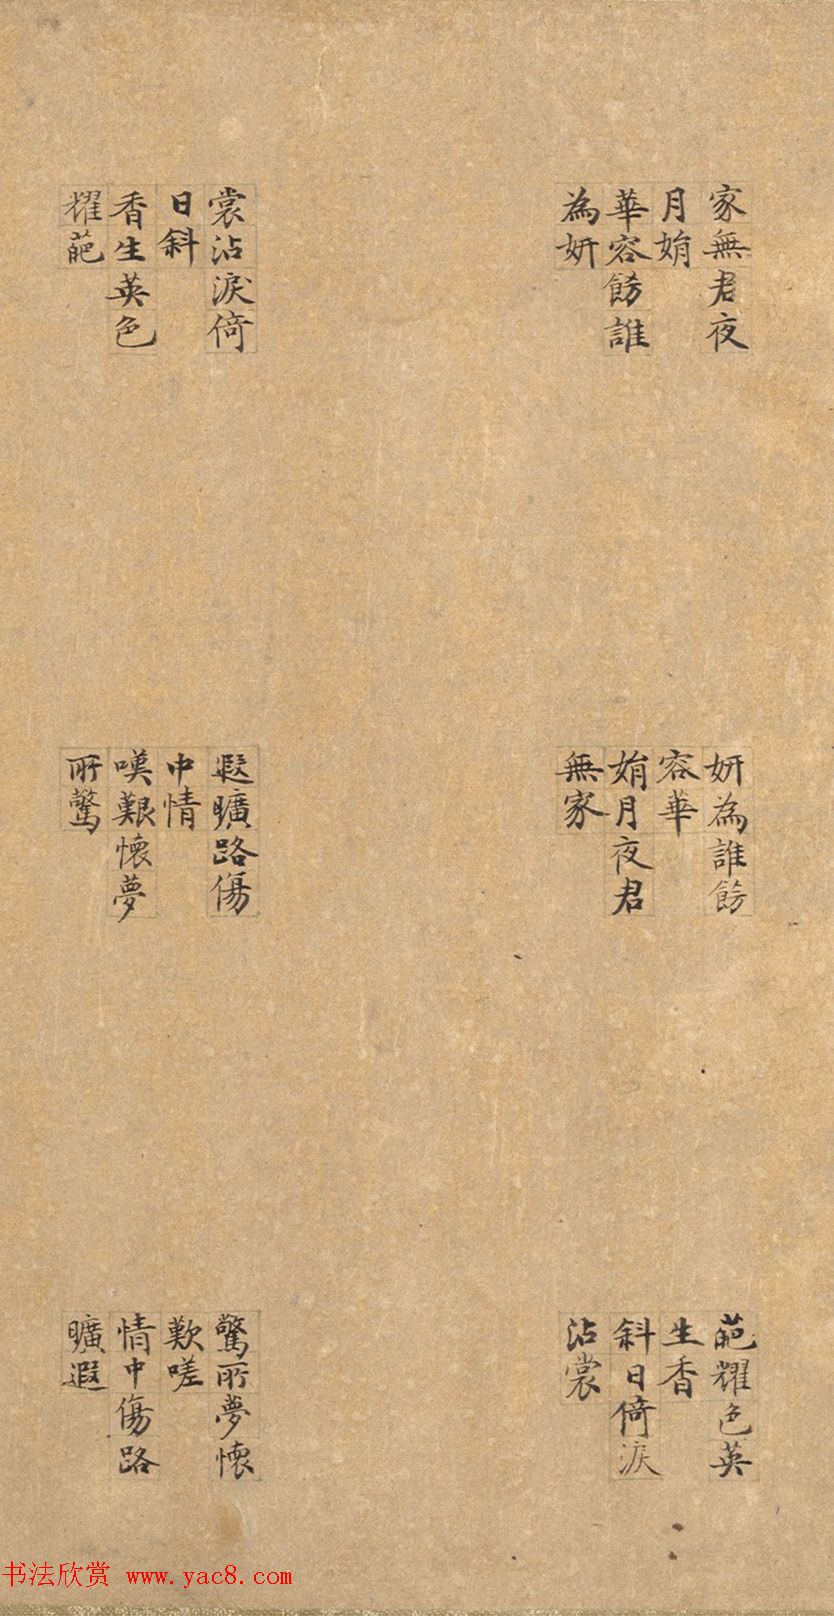 家無君夜
月娋
華容飾誰
為妍
裳沾淚倚
日斜
香生英色
耀葩
妍為誰飾
容華
娋月夜君
無家
遐曠路傷
中情
嘆艱懷夢
所驚
葩耀色英
生香
斜日倚淚
沾裳
驚所夢懷
歎嗟
情中傷路
曠遐
书法欣赏 www.yac8.com